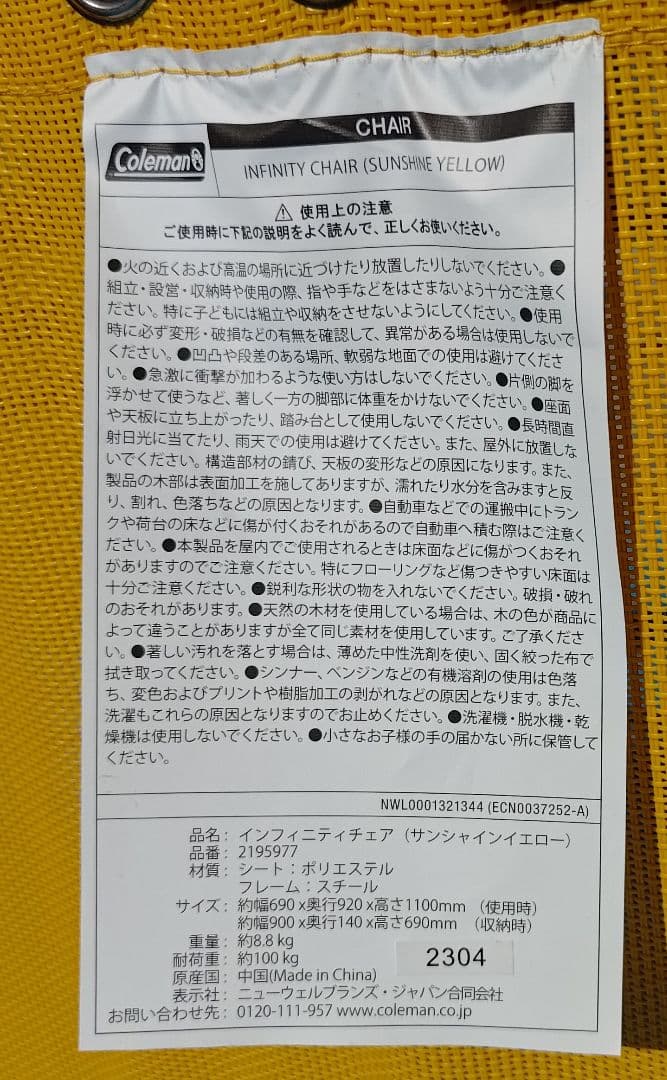 CHAIR
Coleman
INFINITY CHAIR (SUNSHINE YELLOW)
⚠ 使用上の注意
ご使用時に下記の説明をよく読んで、正しくお使いください。
●火の近くおよび高温の場所に近づけたり放置したりしないでください。●
組立・設営・収納時や使用の際、指や手などをはさまないよう十分ご注意く
ださい。特に子どもには組立や収納をさせないようにしてください。●使用
時に必ず変形・破損などの有無を確認して、異常がある場合は使用しないで
ください。●凹凸や段差のある場所、軟弱な地面での使用は避けてくださ
い。●急激に衝撃が加わるような使い方はしないでください。●片側の脚を
浮かせて使うなど、著しく一方の脚部に体重をかけないでください。●座面
や天板に立ち上がったり、踏み台として使用しないでください。●長時間直
射日光に当てたり、雨天での使用は避けてください。また、屋外に放置しな
いでください。構造部材の錆び、天板の変形などの原因になります。また、
製品の木部は表面加工を施してありますが、濡れたり水分を含みますと反
り、割れ、色落ちなどの原因となります。●自動車などでの運搬中にトラン
クや荷台の床などに傷が付くおそれがあるので自動車へ積む際はご注意く
ださい。●本製品を屋内でご使用されるときは床面などに傷がつくおそれ
がありますのでご注意ください。特にフローリングなど傷つきやすい床面は
十分ご注意ください。●鋭利な形状の物を入れないでください。破損・破れ
のおそれがあります。●天然の木材を使用している場合は、木の色が商品に
よって違うことがありますが全て同じ素材を使用しています。ご了承くださ
い。●著しい汚れを落とす場合は、薄めた中性洗剤を使い、固く絞った布で
拭き取ってください。●シンナー、ベンジンなどの有機溶剤の使用は色落
ち、変色およびプリントや樹脂加工の剥がれなどの原因となります。また、
洗濯もこれらの原因となりますのでお止めください。●洗濯機・脱水機・乾
燥機は使用しないでください。●小さなお子様の手の届かない所に保管して
ください。
NWL0001321344 (ECN0037252-A)
品名：インフィニティチェア（サンシャインイエロー）
品番：2195977
材質：シート：ポリエステル
フレーム：スチール
サイズ：約幅690 x奥行920 x高さ1100mm （使用時）
約幅900 x奥行140 x高さ690mm （収納時）
重量：約8.8 kg
耐荷重：約100 kg
2304
原産国：中国(Made in China)
表示社：ニューウェルブランズ・ジャパン合同会社
お問い合わせ先：0120-111-957 www.coleman.co.jp